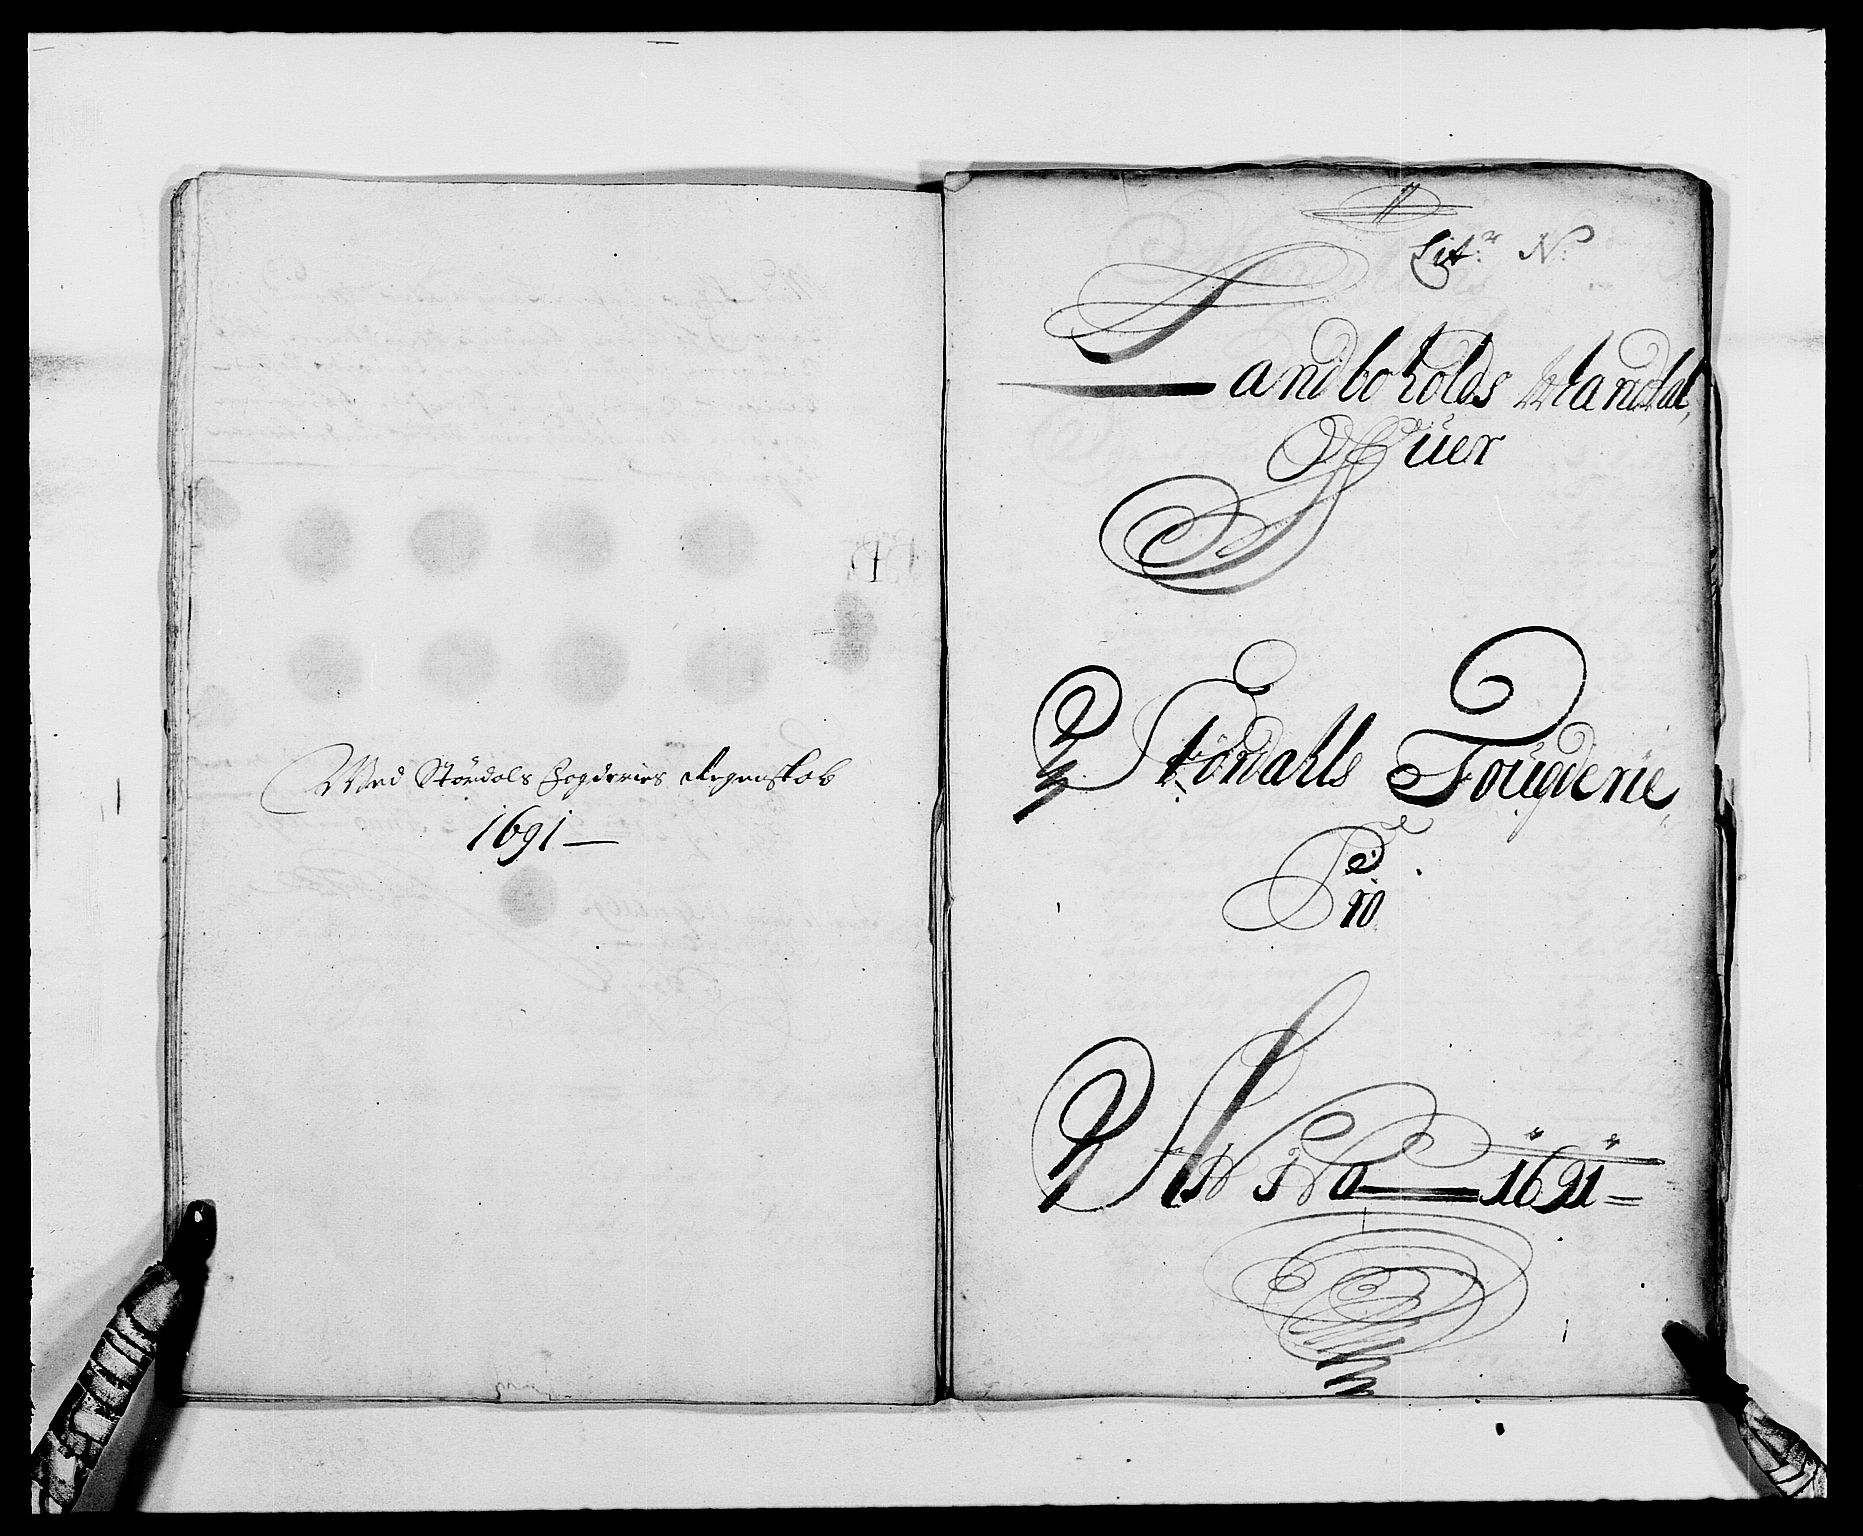 Med Stördals fogderies Regenskab
1691
Litr. N.
Landboholds Mandtal,
Ofuer
Stördahls Fougderie,
Pro
ANNO 1691